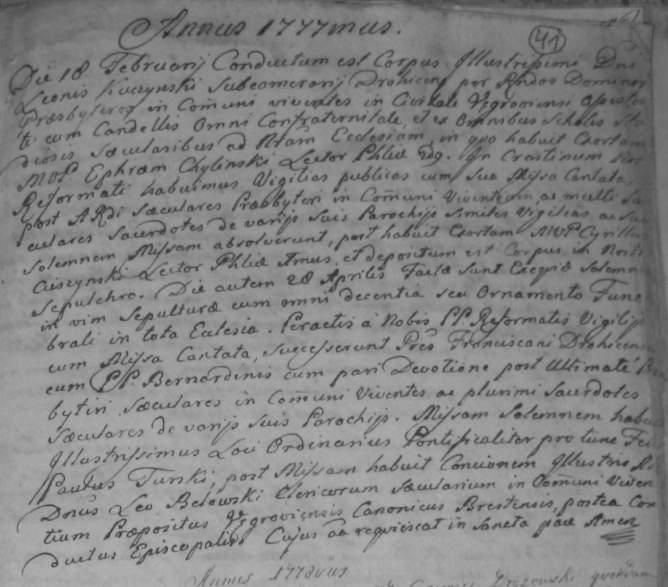 Annus 1777mus.
41
Die 18 Februarij Conductum est Corpus Illustrissimi Dni
Leonis Kuczynski Subcamerarij Drohicen. per Rndos Dominos
Præsbyteros in Comuni viventes in Civitate Vegroviensi
te cum Candellis Omni Confraternitate, et ex Omnibus Scholis Stu
diosis Sæcularibus ad Nram Ecclesiam, in quo habuit Exortam
MVP. Ephræm Chylinski Lector Phliæ In Crastinum Nos
Reformati habuimus Vigilias publicas cum Sua Missa Cantata,
post ARdi Sæculares Præbbyteri in Comuni Viventium, ac multi Sæ
culares Sacerdotes de varijs suis Parochijs Similes Vigilias ac Suam
Solemnem Missam absolverunt, post habuit Exortam MVP Cyrillus
Cieszynski Lector Phliæ Annus, et depositum est Corpus in Nostro
Sepulchro. Die autem 28 Aprilis Factæ Sunt Exequiæ Solemn
in vim Sepulturæ cum omni decentia seu Ornamento Fune
brali in tota Eclesia. Peractis à Nobis PP. Reformatis Vigilijs
cum Missa Cantata, successerunt Pres Franciscani Drohicenen
cum PP. Bernardinis cum pari Devotione post Ultimatè
byteri Sæculares in Comuni Viventes ac plurimi Sacerdotes
Sæculares de varijs suis Parochijs. Missam Solemnem habuit
Illustrissimus Loci Ordinarius Pontificaliter pro tunc
Paulus Turski, post Missam habuit Concionem Illustris
Dnus Leo Belewski Clericorum Sæcularium in Comuni Viven
tium Præpositus Vegroviensis Canonicus Brestensis, postea Con
ductus Episcopalis Cujus aa requiescat in Sancta pace Amen
Annus 1778vus
quondam